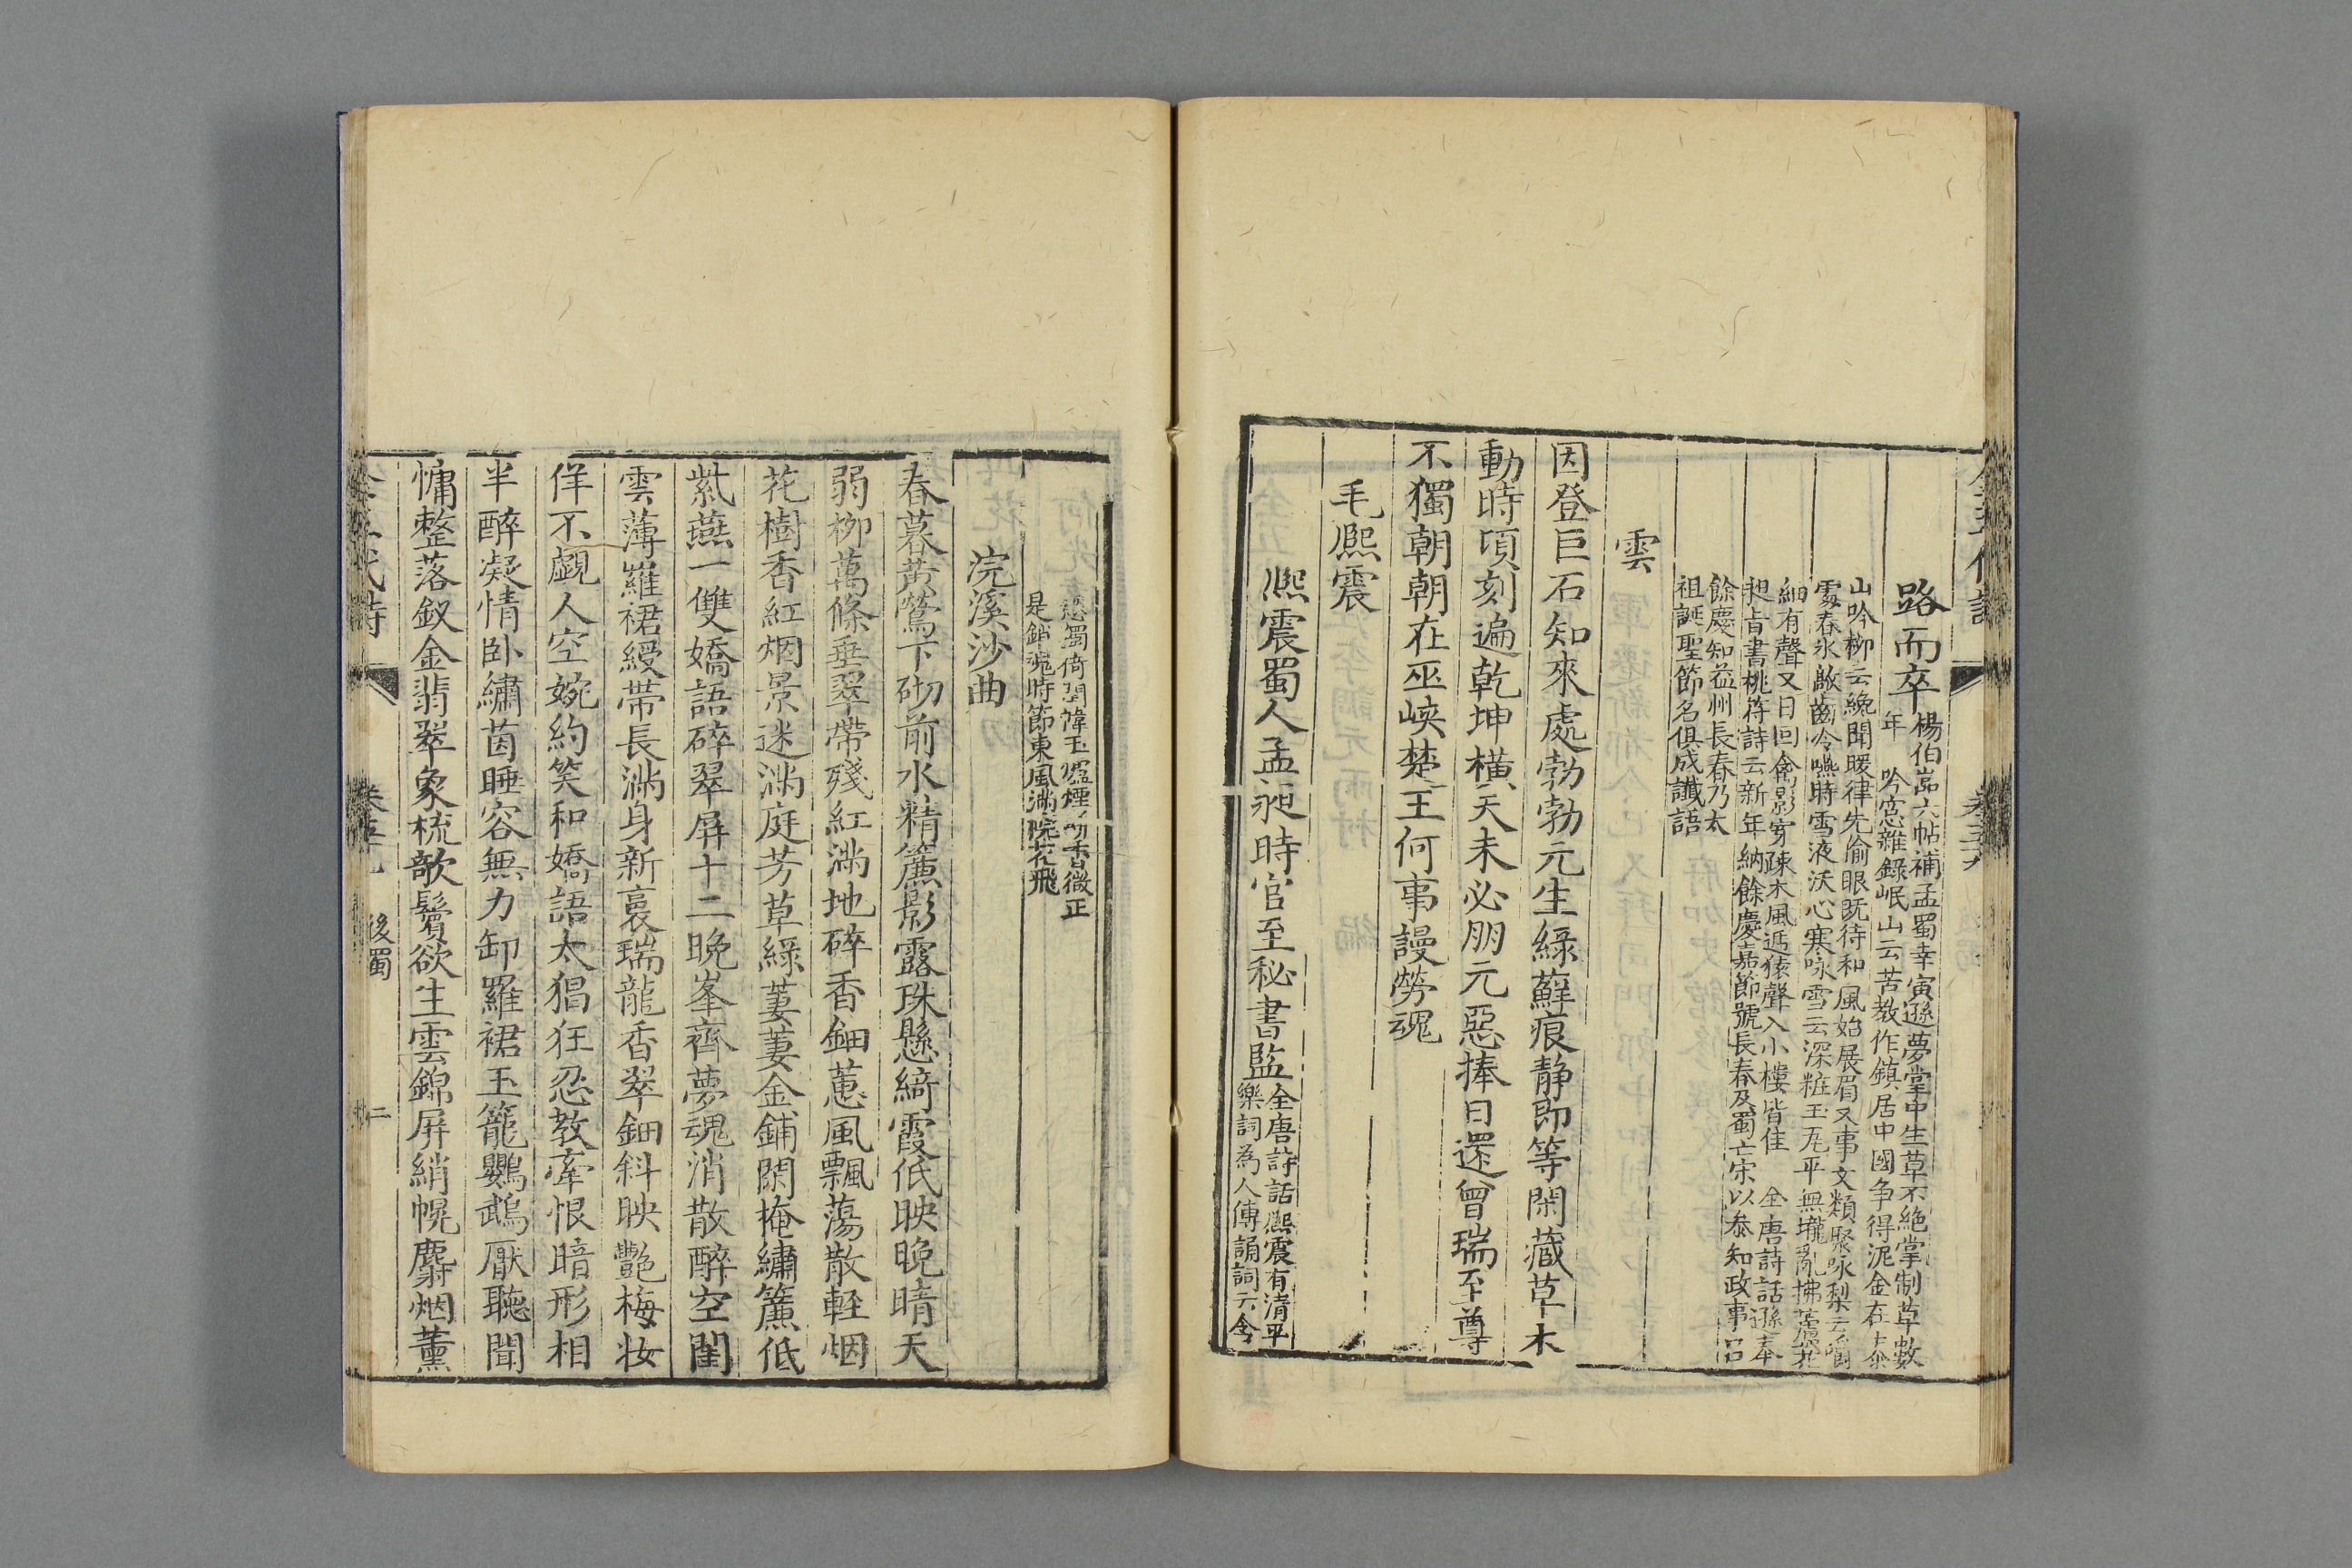 路而卒
楊伯嵒六帖補孟蜀幸寅遜夢掌中生草不絶掌制草數
年 吟窓雜錄岷山云苦教作鎮居中國争得泥金在
山吟柳云纔聞暖律先偷眼既待和風始展眉又事文類聚咏梨云
春氷敲齒冷嚥時雪液沃心寒咏雪云深粧玉瓦平無壠亂拂蘆花
細有聲又曰回禽影穿疎木風遞猿聲入小樓皆佳 全唐詩話遜奉
昶㫖書桃符詩云新年納餘慶嘉節號長春及蜀亡宋以叅知政事呂
餘慶知益州長春乃太
祖誕聖節名俱成讖語
雲
因登巨石知來處勃勃元生綠蘚痕静即等閑藏草木
動時頃刻遍乾坤横天未必朋元惡捧日還曾瑞至尊
不獨朝朝在巫峽楚王何事謾勞魂
毛熈震
熈震蜀人孟昶時官至秘書監
全唐詩話熈震有清平
樂詞為人傳誦詞云含
愁獨倚閨幃玉爐煙香微正
是銷魂時節東風滿院花飛
浣溪沙曲
春暮黃鶯下砌前水精簾影露珠懸綺霞低映晚晴天
弱柳萬條垂翠帶殘紅滿地碎香鈿蕙風飄蕩散輕烟
花樹香紅烟景迷滿庭芳草綠萋萋金鋪閑掩繡簾低
紫燕一雙嬌語碎翠屏十二晚峯齊夢魂消散醉空閨
雲薄羅裙綬帶長滿身新裛瑞龍香翠鈿斜映艷梅妝
佯不覷人空婉約笑和嬌語太猖狂忍教牽恨暗形相
半醉凝情卧繡茵睡容無力卸羅裙玉籠鸚鵡厭聽聞
慵整落釵金翡翠象梳欹鬢欲生雲錦屏綃幌麝烟薰
後蜀
二